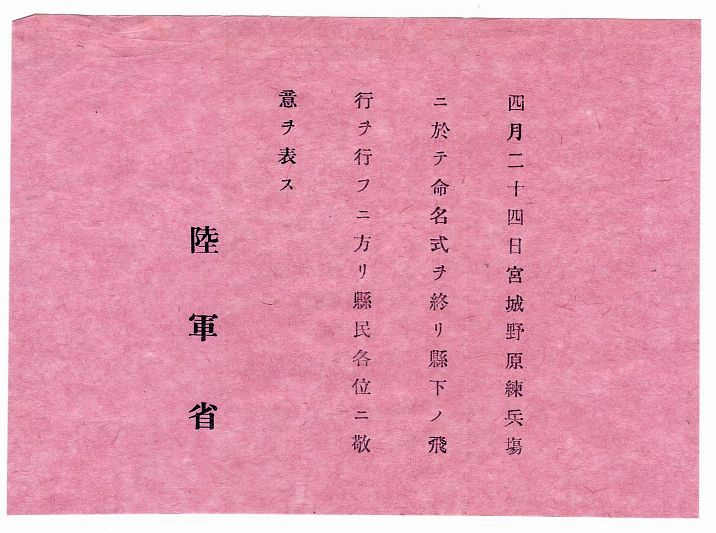 四月二十四日宮城野原練兵塲
ニ於テ命名式ヲ終リ縣下ノ飛
行ヲ行フニ方リ縣民各位ニ敬
意ヲ表ス
陸軍省